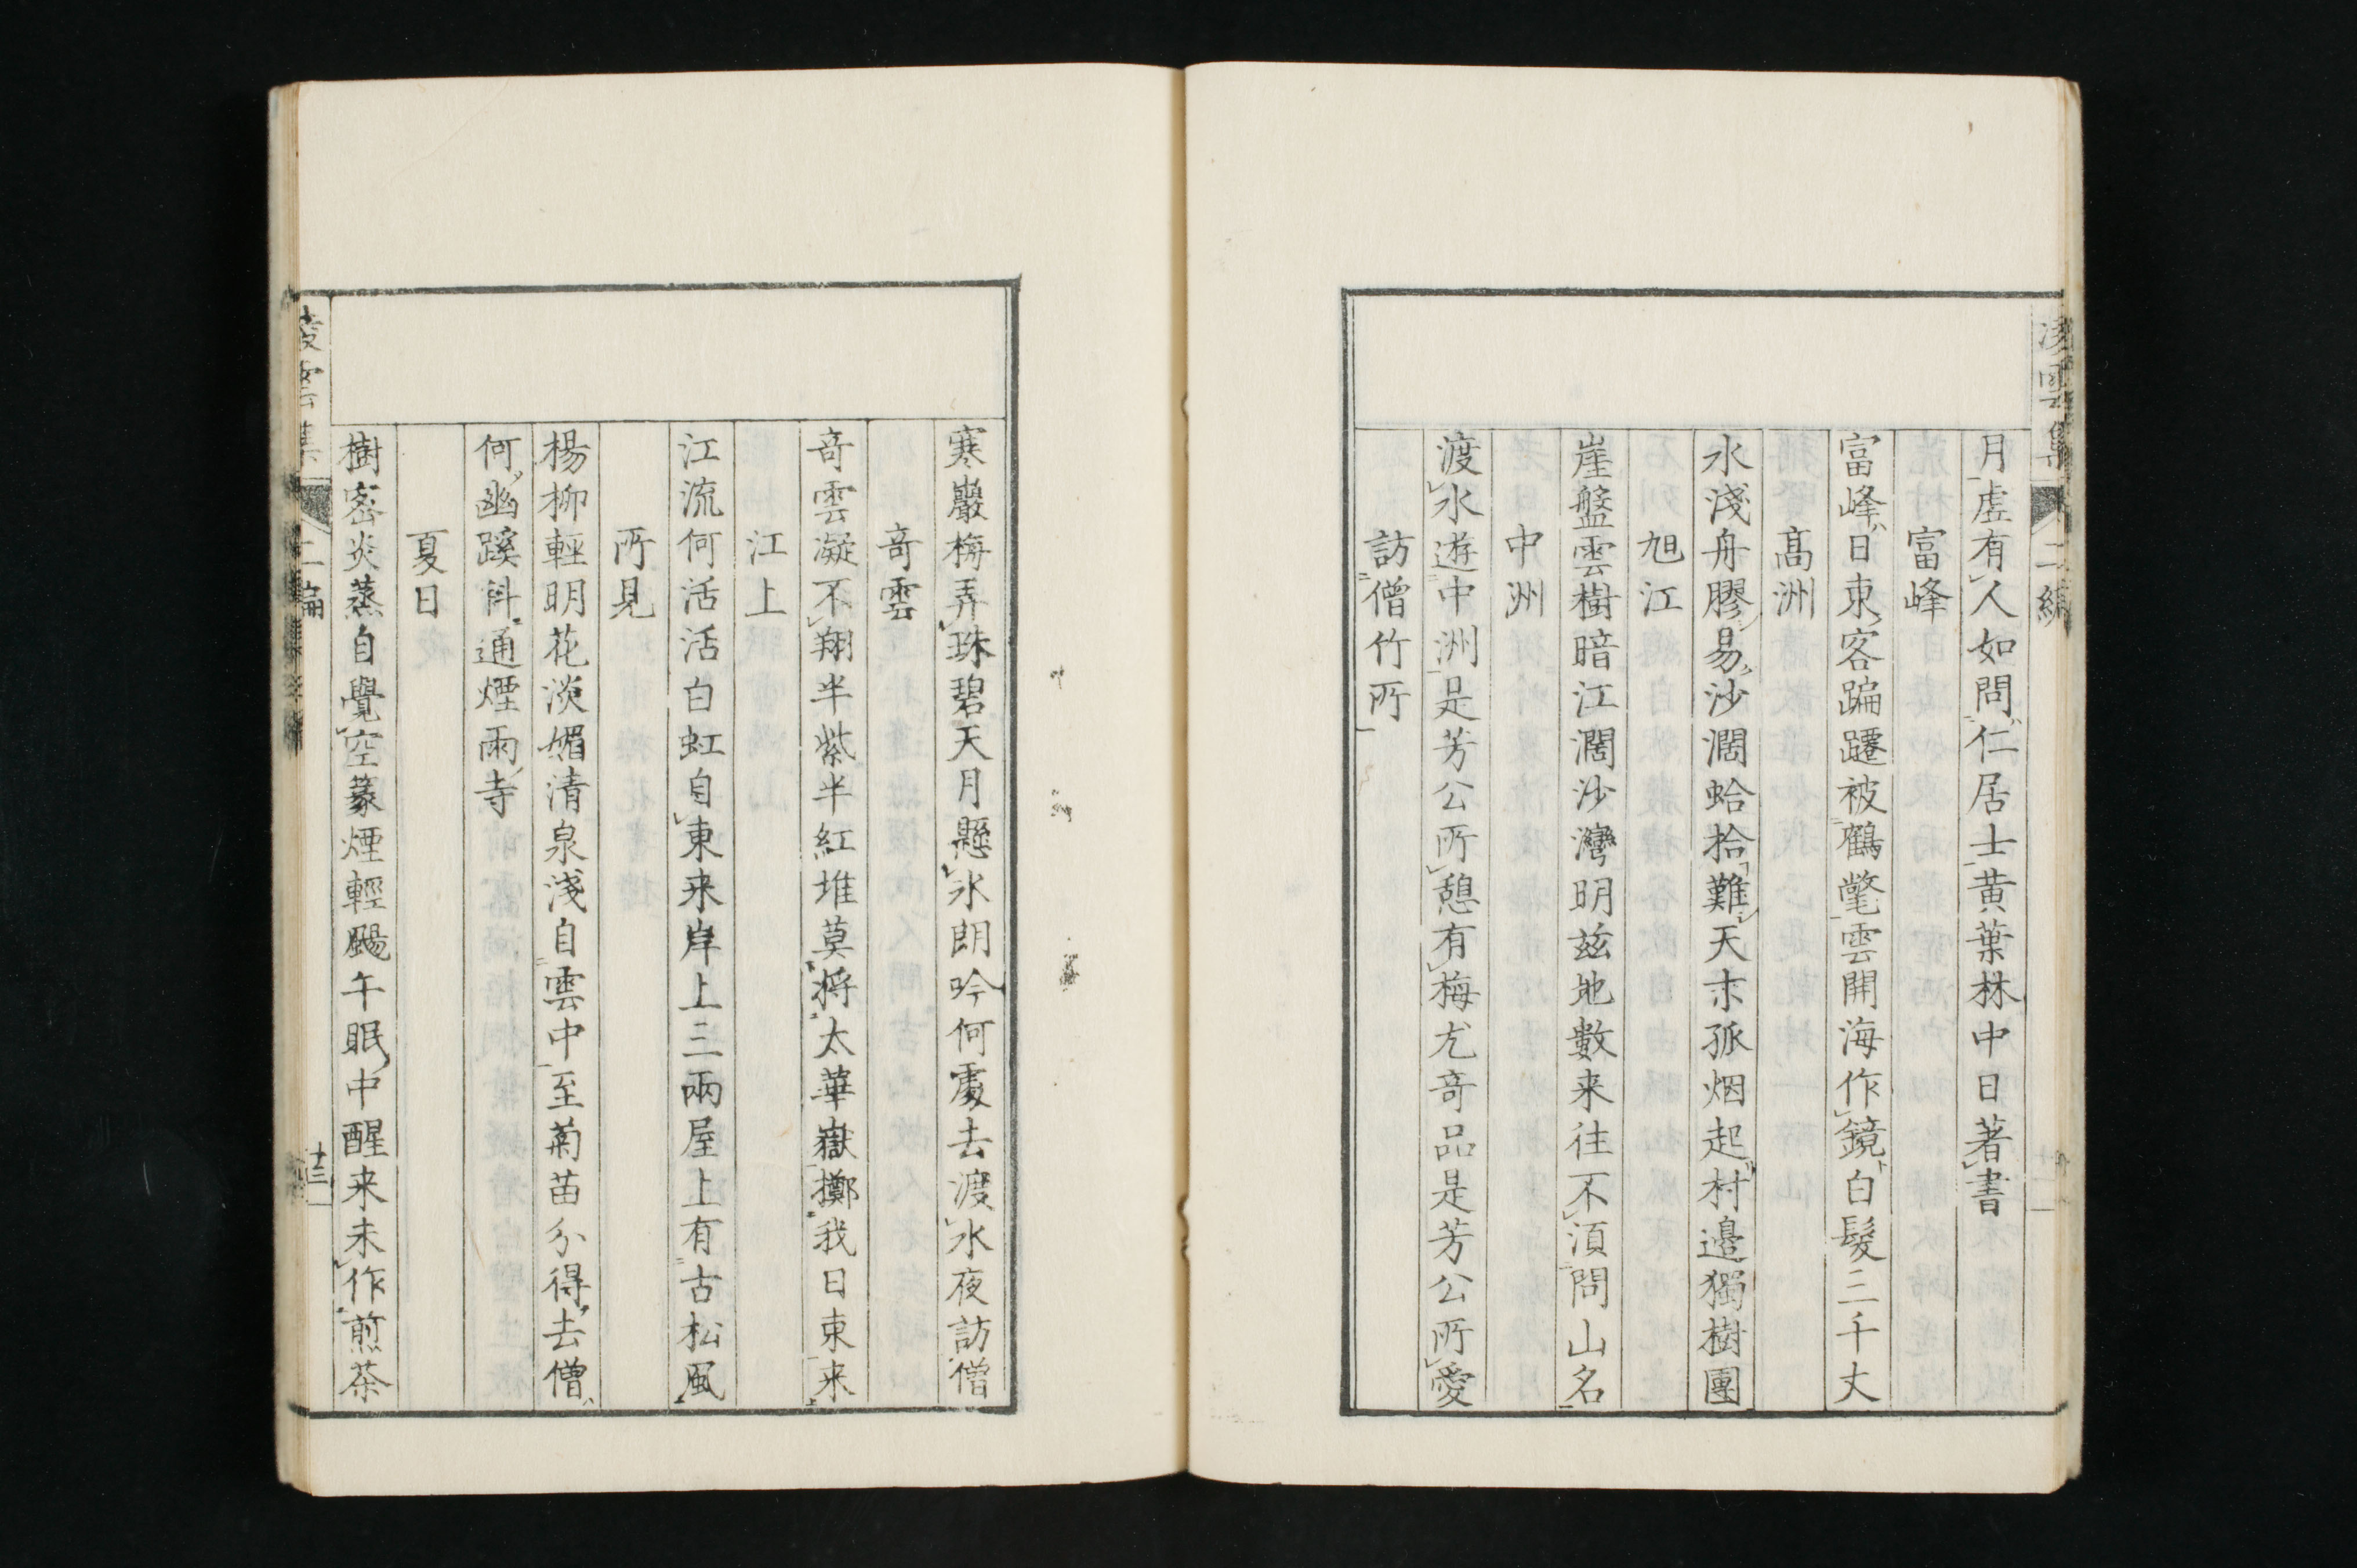 凌雲集 二編
月虛有人如問仁居士黄葉林中日著書
富峰
富峰日東客蹁躚被鶴氅雲開海作鏡白髮三千丈
高洲
水淺舟膠易沙濶蛤拾難天末孤烟起村邊獨樹團
旭江
崖盤雲樹暗江濶沙灣明兹地數来往不須問山名
中洲
渡水遊中洲是芳公所憩有梅尤奇品是芳公所愛
訪僧竹所
寒巖梅弄珠碧天月懸氷朗吟何處去渡水夜訪僧
奇雲
奇雲凝不翔半紫半紅堆莫将太華嶽擲我日東来
江上
江流何活活白虹自東来岸上三兩屋上有古松風
所見
楊柳輕明花淡媚清泉淺自雲中至菊苗分得去僧
何幽蹊斜通煙雨寺
夏日
樹密炎蒸自覺空篆煙輕颺午眠中醒来未作煎茶
凌雲集 二編 十三